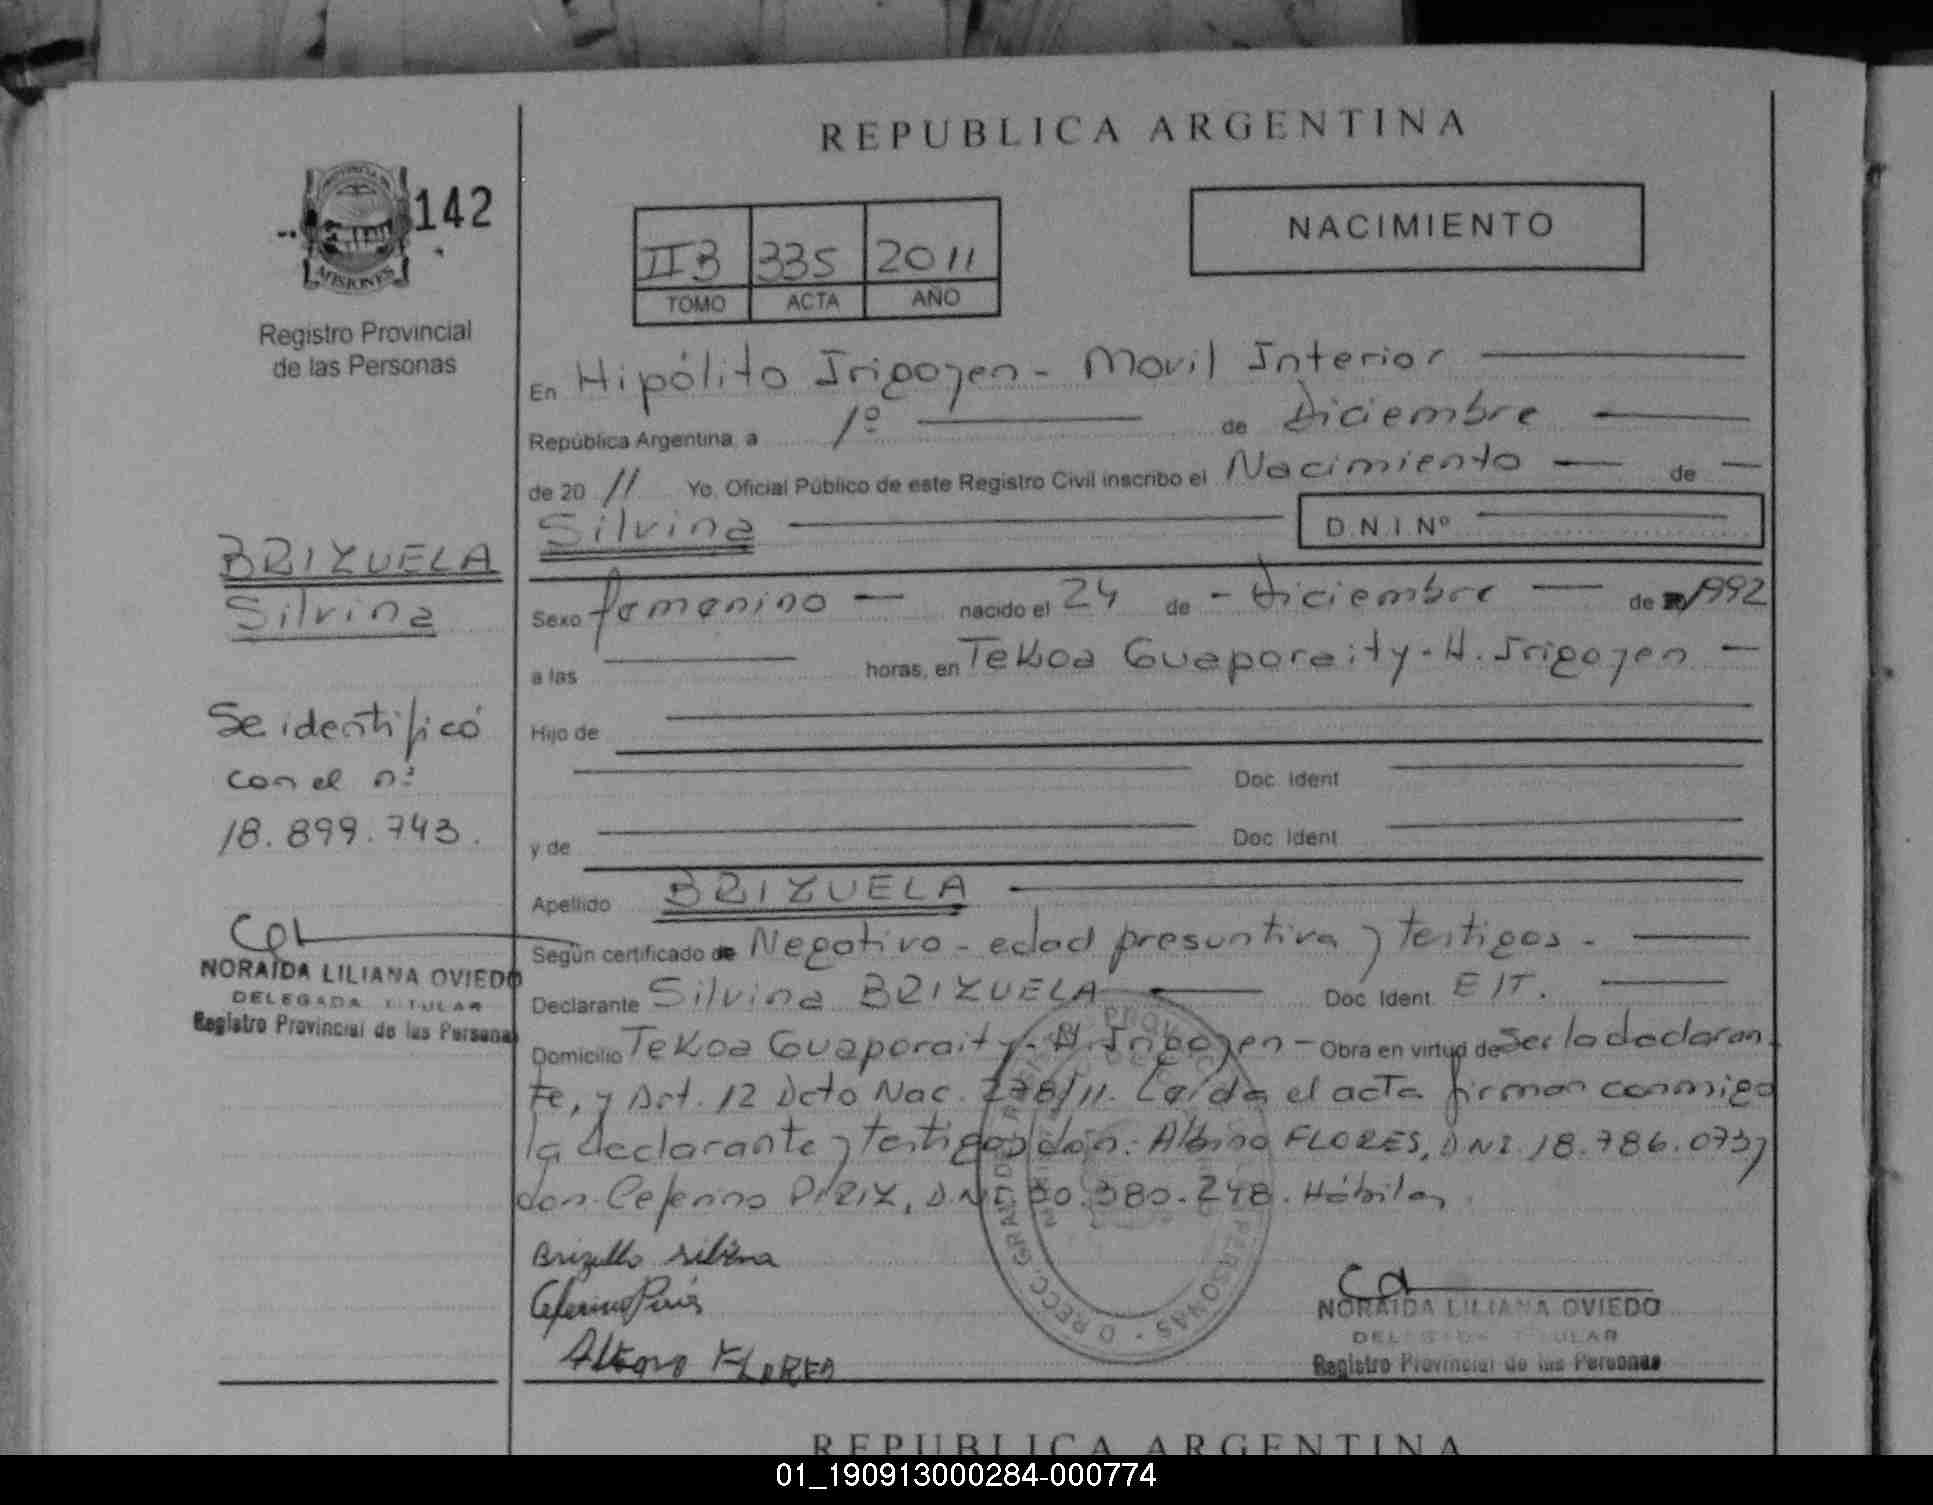 REPUBLICA ARGENTINA
PROVINCIA DE
MISIONES
142
Registro Provincial
de las Personas
II B 335 2011
TOMO ACTA AÑO
NACIMIENTO
En Hipólito Irigoyen - Movil Interior
República Argentina, a 1º de Diciembre
de 20 11 Yo, Oficial Público de este Registro Civil inscribo el Nacimiento de
Silvina D.N.I. Nº
BRIZUELA
Silvina
Sexo femenino nacido el 24 de - Diciembre de 1992
a las horas, en Tekoa Guaporaity - H. Irigoyen
Hijo de
Doc. Ident
y de Doc. Ident
Se identificó
con el nº
18.899.743.
Apellido BRIZUELA
Según certificado de Negativo - edad presuntiva y testigos -
Declarante Silvina BRIZUELA Doc. Ident. EIT.
Domicilio Tekoa Guaporaity - H. Irigoyen - Obra en virtud de ser la declaran
te, y Art. 12 Dcto Nac. 278/11. Leída el acta firman conmigo
la declarante y testigos don: Albino FLORES, DNI 18.786.073 y
don Ceferino PIRIZ, DNI 30.380.248. Hábiles
NORAIDA LILIANA OVIEDO
DELEGADA TITULAR
Registro Provincial de las Personas
Brizuella silvina
Ceferino Piris
FLORES
DIRECC. GRAL. DE PERSONAS
NORAIDA LILIANA OVIEDO
DELEGADA TITULAR
Registro Provincial de las Personas
REPUBLICA ARGENTINA
01_190913000284-000774